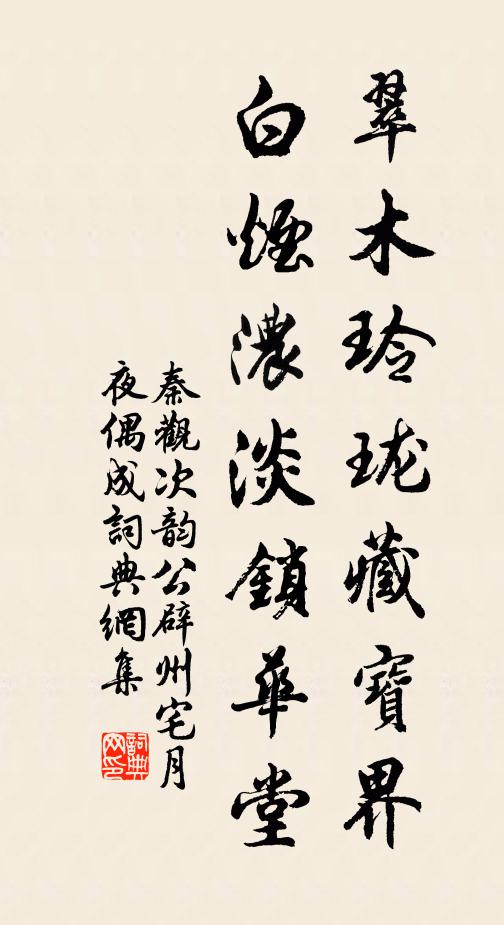 翠木玲珑藏寶界
白煙濃淡鎖華堂
秦觀次韵公辟州宅月
夜偶成詞典網集
詞典网印